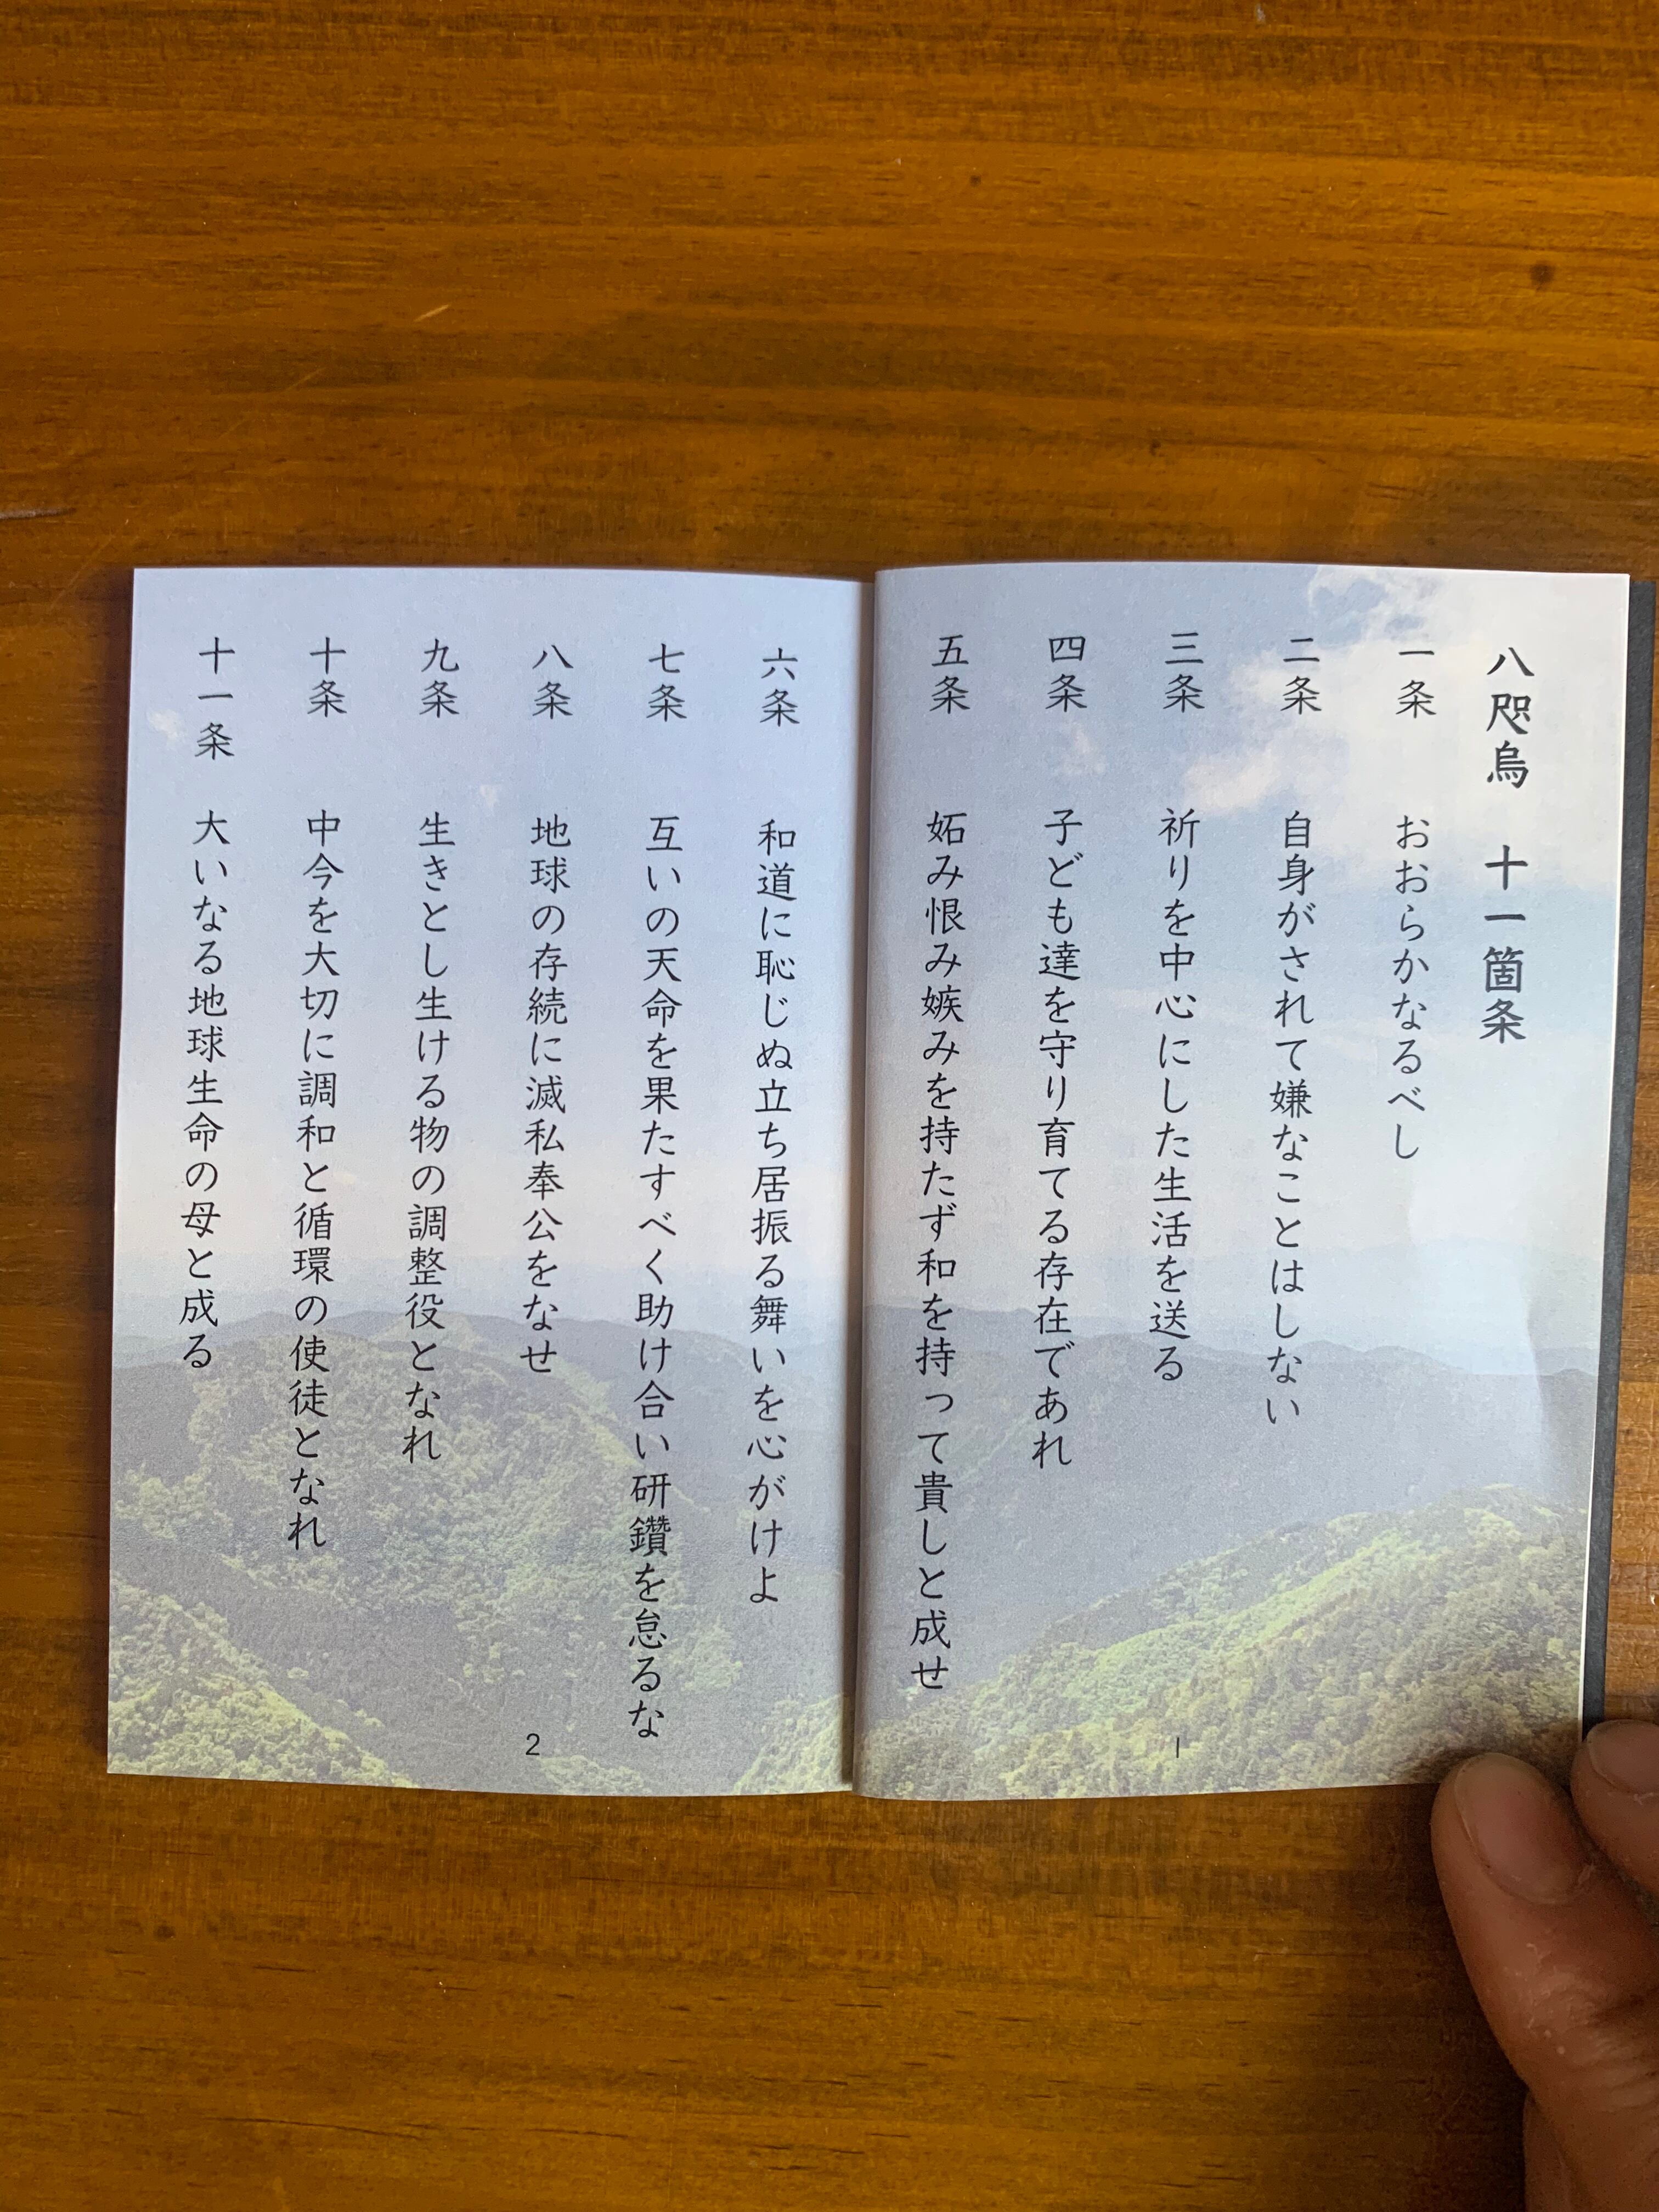 八咫烏 十一箇条
一条 おおらかなるべし
二条 自身がされて嫌なことはしない
三条 祈りを中心にした生活を送る
四条 子ども達を守り育てる存在であれ
五条 妬み恨み嫉みを持たず和を持って貴しと成せ
1
六条 和道に恥じぬ立ち居振る舞いを心がけよ
七条 互いの天命を果たすべく助け合い研鑽を怠るな
八条 地球の存続に滅私奉公をなせ
九条 生きとし生ける物の調整役となれ
十条 中今を大切に調和と循環の使徒となれ
十一条 大いなる地球生命の母と成る
2